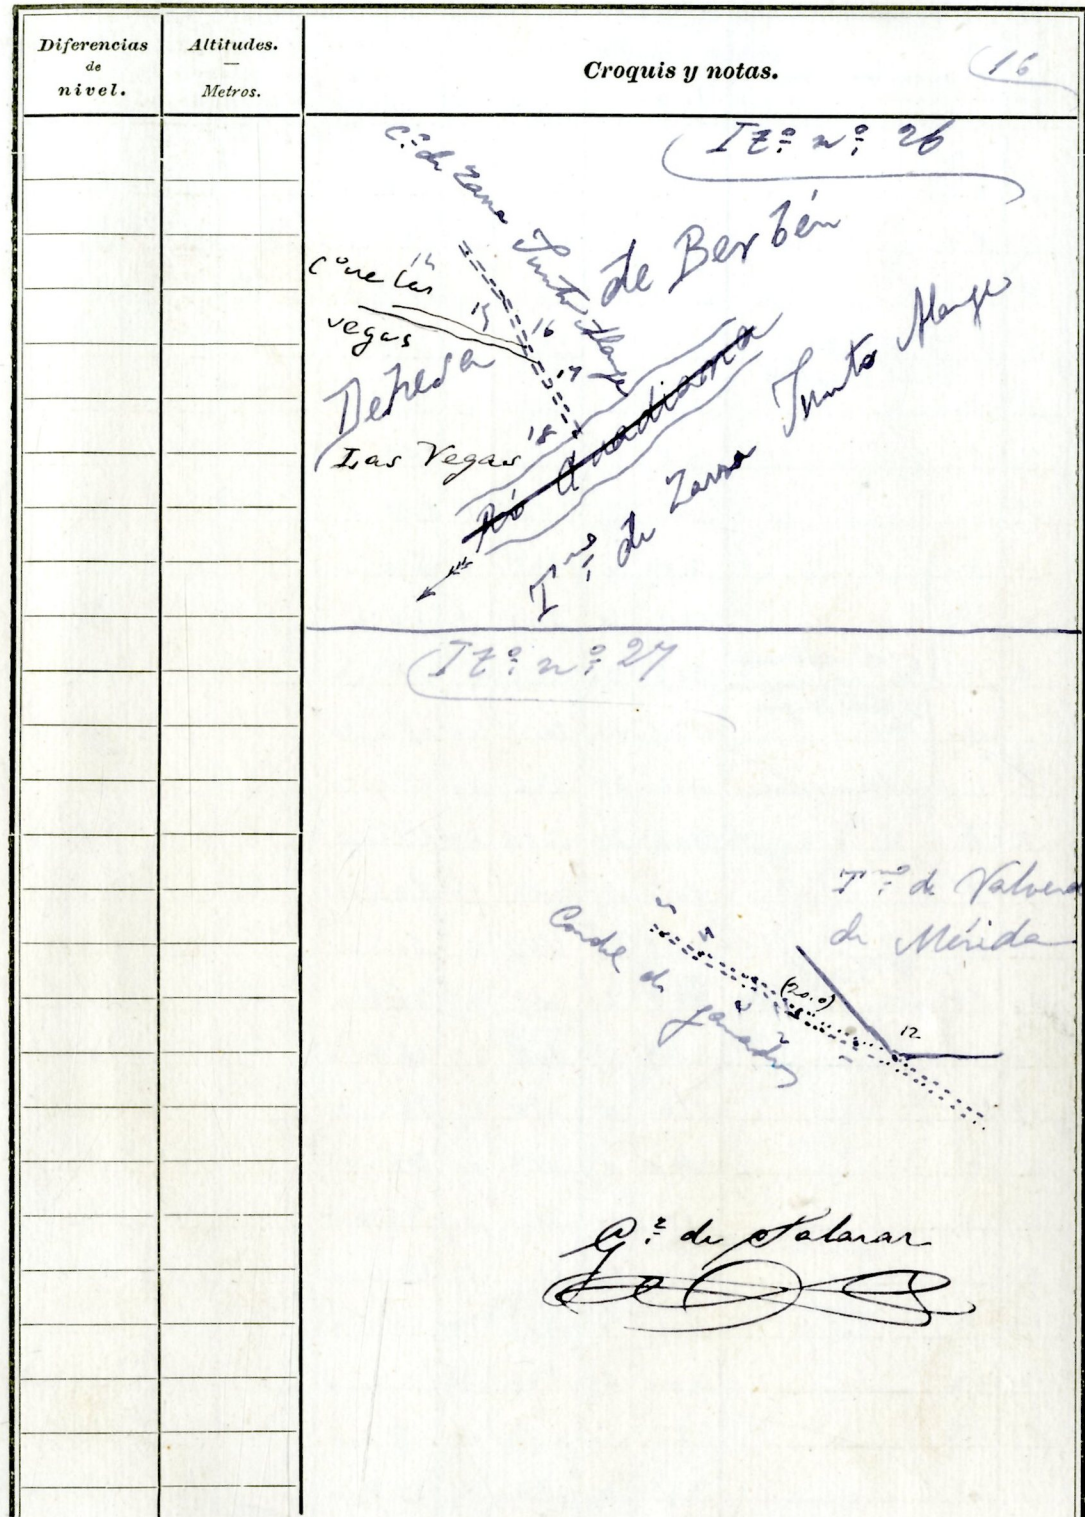 Diferencias
de
nivel.
Altitudes.
Metros.
Croquis y notas.
16
Itº nº 26
Cº de Zarza Junto Alange
Cº de las
vegas
15
16
17
18
Dehesa de Berbén
Las Vegas
Río Guadiana
Tno de Zarza Junto Alange
Itº nº 27
Tno de Valverde
de Mérida
Cordel de ganados
(20.0)
12
2
Gª de Salazar